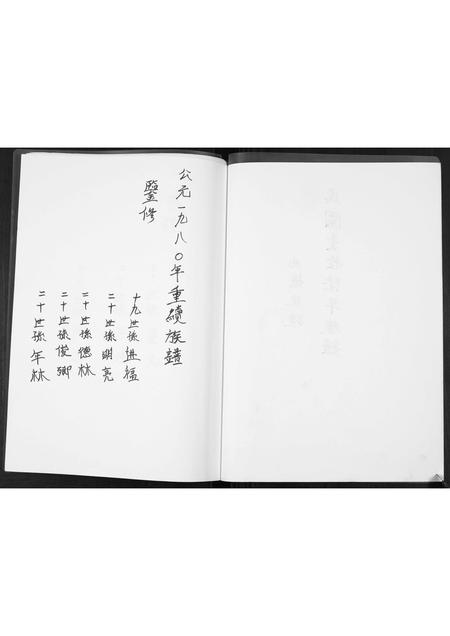 公元一九八〇年重續族譜
監修
十九世孫進福
二十世孫明亮
二十世孫德林
二十世孫俊卿
二十世孫年林